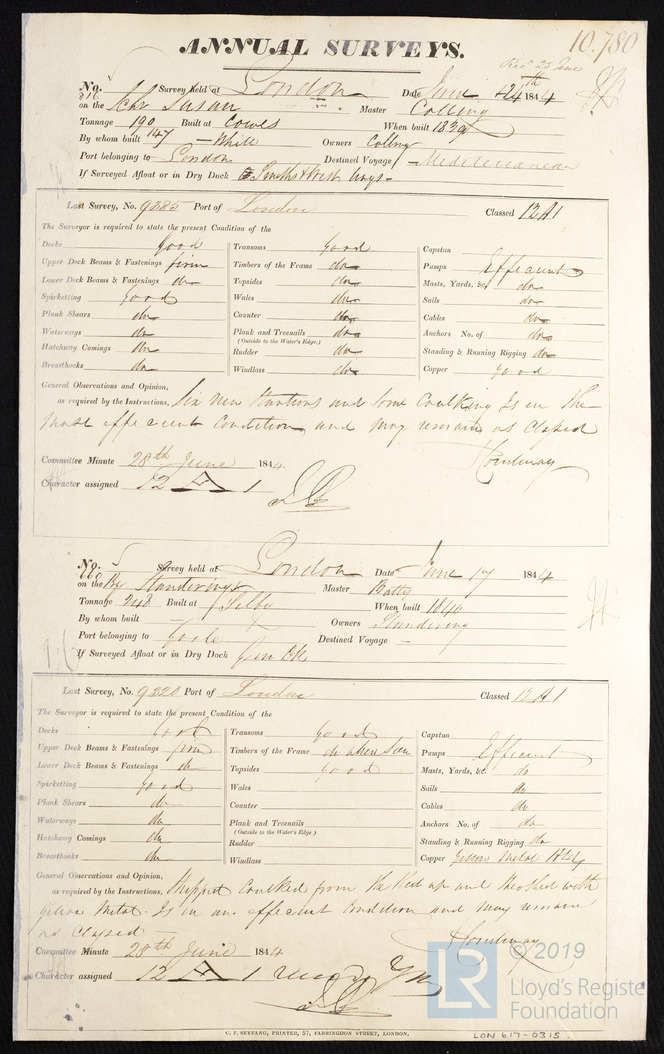 10.780
ANNUAL SURVEYS.
Recd 25 June
No. Survey held at London Date June 24th 1844
on the Schr Susan Master Colling
Tonnage 190 Built at Cowes When built 1839
147
By whom built White Owners Colling
Port belonging to London Destined Voyage Mediterranean
If Surveyed Afloat or in Dry Dock
Last Survey, No. 9385 Port of London Classed 12 A1
The Surveyor is required to state the present Condition of the
Decks Good Transoms Good Capstan
Upper Deck Beams & Fastenings firm Timbers of the Frame do Pumps Efficient
Lower Deck Beams & Fastenings do Topsides do Masts, Yards, &c. do
Spirketting Good Wales do Sails do
Plank Shears do Counter do Cables do
Waterways do Plank and Treenails do Anchors No. of do
(Outside to the Water's Edge.)
Hatchway Comings do Rudder do Standing & Running Rigging do
Breasthooks do Windlass do Copper good
General Observations and Opinion,
as required by the Instructions, Six new Stantions and some Caulking Is in the
most efficient Condition and may remain as Classed
Committee Minute 28th June 1844
Character assigned 12 A 1
No. 5 Survey held at London Date June 17 1844
on the Bg Master Batty
Tonnage 248 Built at Selby When built 1840
By whom built - Owners Standering
Port belonging to Goole Destined Voyage -
If Surveyed Afloat or in Dry Dock
Last Survey, No. 9320 Port of London Classed 12 A1
The Surveyor is required to state the present Condition of the
Decks Good Transoms Good Capstan
Upper Deck Beams & Fastenings firm Timbers of the Frame do where seen Pumps Efficient
Lower Deck Beams & Fastenings do Topsides good Masts, Yards, &c. do
Spirketting Good Wales Sails do
Plank Shears do Counter Cables do
Waterways do Plank and Treenails Anchors No. of do
(Outside to the Water's Edge.)
Hatchway Comings do Rudder Standing & Running Rigging do
Breasthooks do Windlass Copper Yellow Metal
General Observations and Opinion,
as required by the Instructions, Stripped Caulked from the Keel up and Sheathed with
Yellow Metal. Is in an efficient Condition and may remain
as Classed
Committee Minute 28th June 1844
Character assigned 12 A 1
© 2019
LR
Lloyd's Register
Foundation
C. F. SEYFANG, PRINTER, 57, FARRINGDON STREET, LONDON.
LON 617-0315